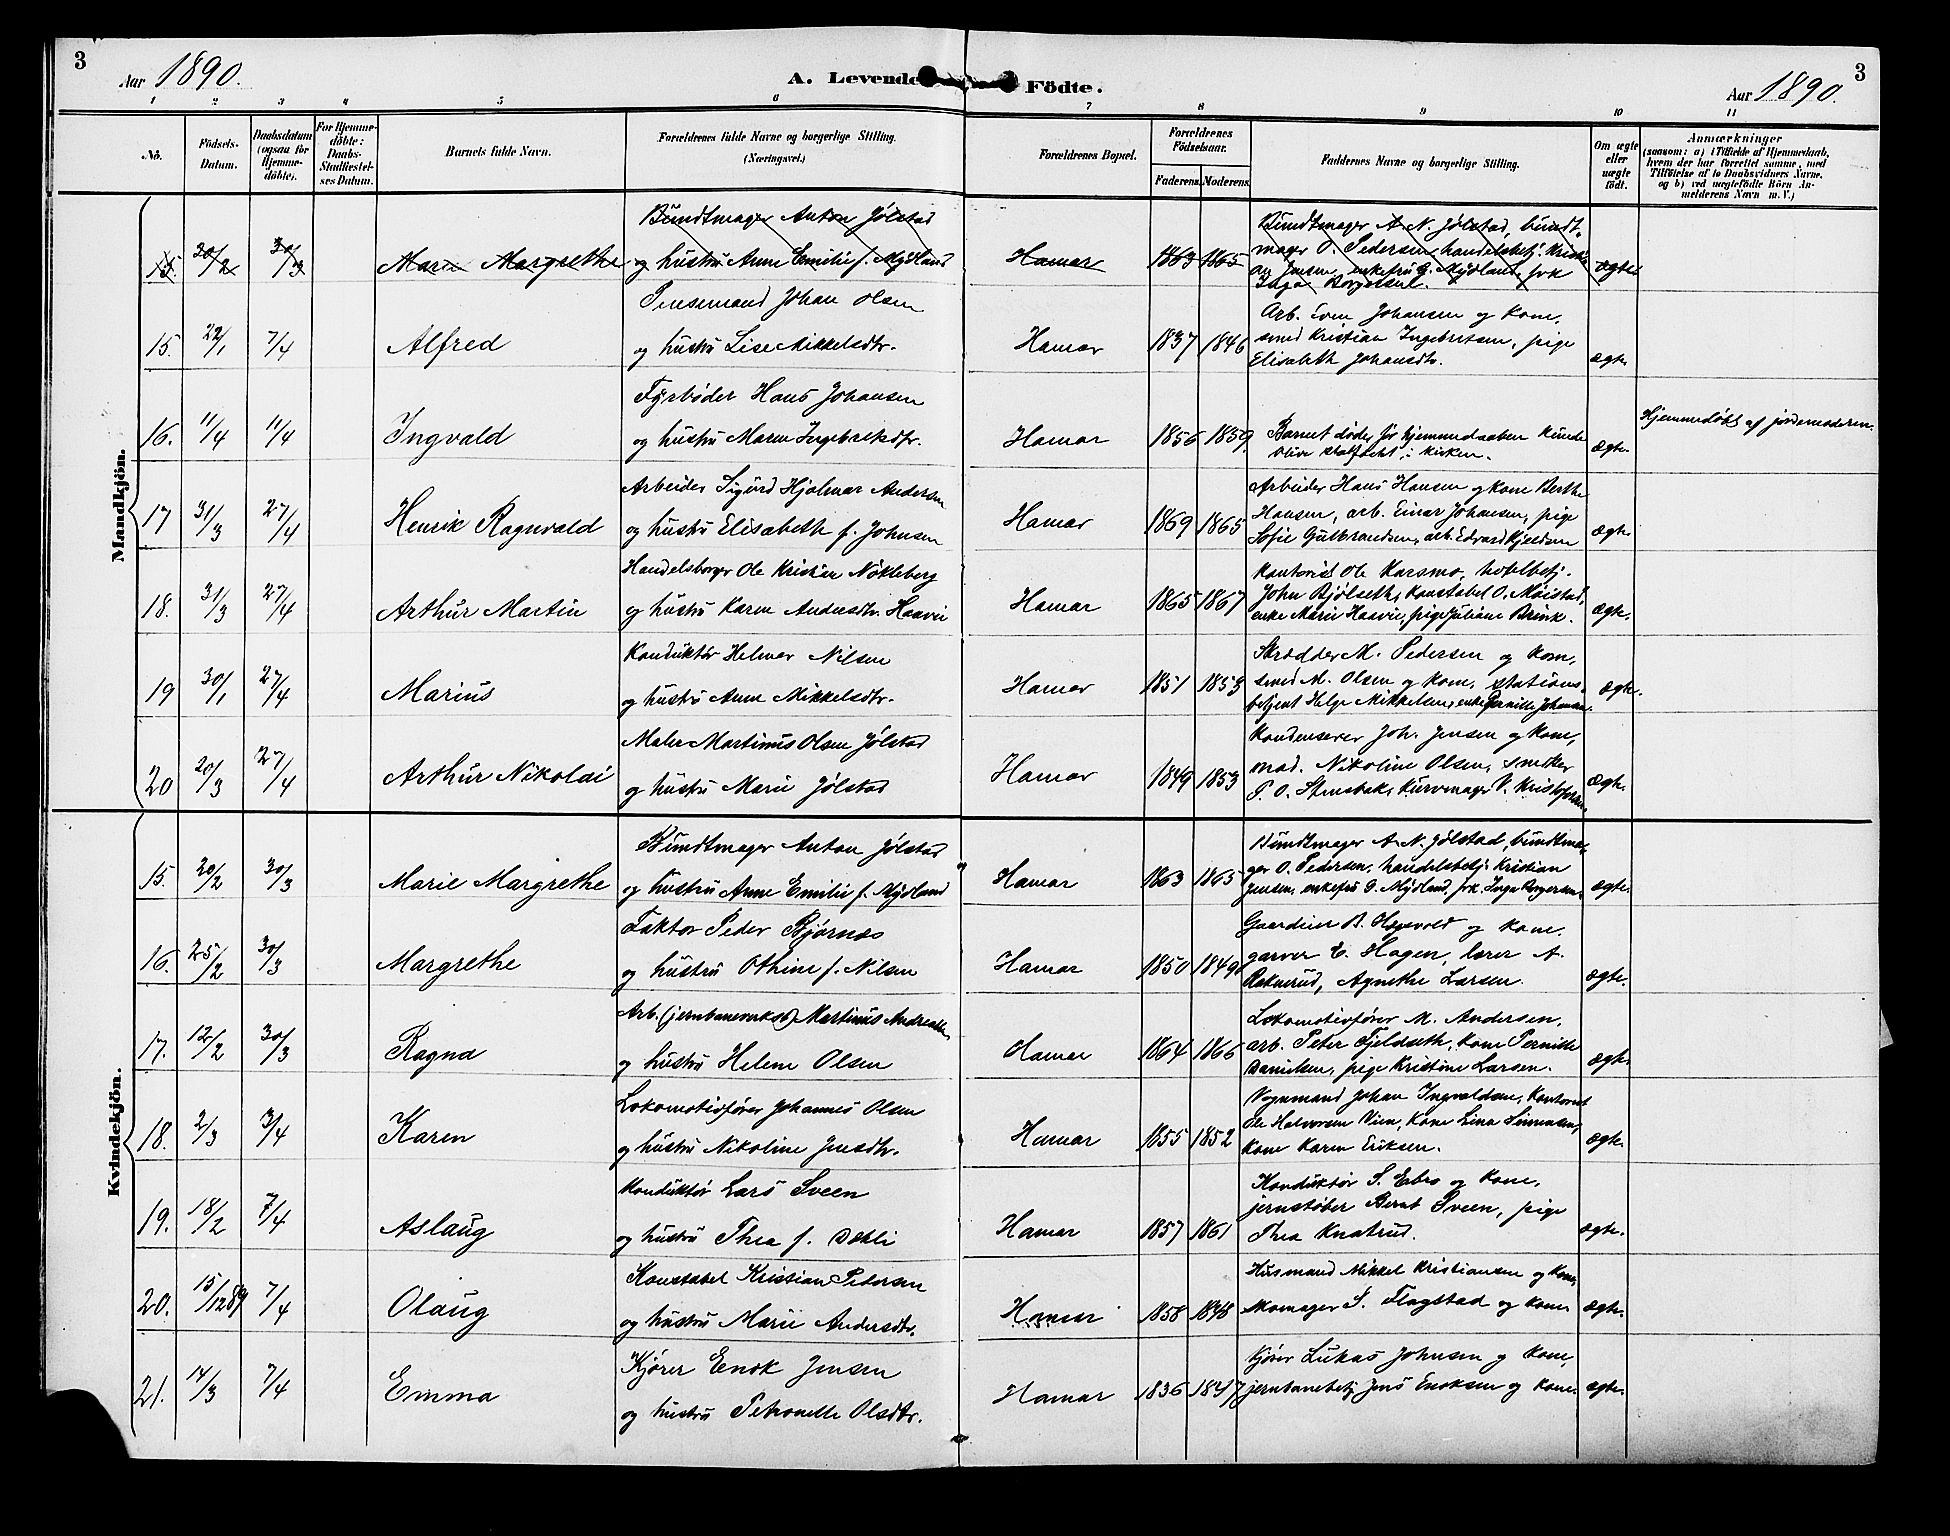 3
Aar 1890.
A. Levende Födte.
Aar 1890.
3
1 2 3 4 5 6 7 8 9 10 11
No.
Födsels-Datum.
Daabsdatum (ogsaa for Hjemme-döbte).
For Hjemme-döbte: Daabs-Stadfæstel-ses Datum.
Barnets fulde Navn.
Forældrenes fulde Navne og borgerlige Stilling. (Næringsvei.)
Forældrenes Bopæl.
Forældrenes Födselsaar.
Faderens. Moderens.
Faddernes Navne og borgerlige Stilling.
Om ægte eller uægte födt.
Anmærkninger
(saasom: a) i Tilfælde af Hjemmedaab, hvem der har forrettet samme, med Tilföielse af to Daabsvidners Navne, og b) ved uægtefödte Börn Anmelderens Navn m. V.)
Mandkjön.
Bundtmager Anton Jølstad
Bundtmager A. N. Jølstad, bundt-
15 20/2 30/3 Marie Margrethe og hustru Anne Emilie f. Mydland Hamar 1863 1865 mager O. Pedersen, handelsbetj. Kristi-
an Jensen, enkefru G. Mydland, frk ægte
Inga Borgersen.
Pensemand Johan Olsen
Arb. Even Johansen og kone,
15. 22/1 7/4 Alfred og hustru Lise Mikkelsdtr. Hamar 1837 1846 smed Kristian Ingebretsen, pige
Elisabeth Johansdtr. ægte
Fyrbøder Hans Johansen
Hjemmedøbt af jordemoderen.
16. 11/4 11/4 Ingvald og hustru Maren Ingebretsdtr. Hamar 1856 1859. Barnet døde før hjemmedaaben kunde
blive stadfæstet i kirken. ægte.
Arbeider Sigurd Hjalmar Andersen
Arbeider Hans Hansen og kone Berthe
17 31/3 27/4 Henrik Ragnvald og hustru Elisabeth f. Johnsen Hamar 1869 1865 Hansen, arb. Einar Johansen, pige
Sofie Gulbrandsen, arb. Edvard Kjeldsen ægte.
Handelsborger Ole Kristian Nökleberg
Kontorist Ole Karsmo, hotelbetj.
18. 31/3 27/4 Arthur Martin og hustru Karen Andersdtr. Haavie Hamar 1865 1867 John Bjölseth, Konstabel O. Moistad,
enke Marie Haavie, pige Juliane Brink. ægte.
Konduktör Helmer Nilsen
Skrædder M. Pedersen og kone,
19 30/1 27/4 Marius og hustru Anne Mikkelsdtr. Hamar 1851 1853 smed M. Olsen og kone, stations-
betjent Helge Mikkelsen, enke Pernille Johansen. ægte.
Maler Martinus Olsen Jølstad
Kondensever Joh. Jensen og kone,
20 20/3 27/4 Arthur Nikolai og hustru Marie Jølstad Hamar 1849 1853 mad. Nikoline Olsen, snedker
P. O. Stensbak, kurvmager V. Kristofersen ægte.
Kvindekjön.
Bundtmager Anton Jølstad
Bundtmager A. N. Jølstad, bundtma-
15. 20/2 30/3 Marie Margrethe og hustru Anne Emilie f. Mydland Hamar 1863 1865 ger O. Pedersen, handelsbetj. Kristian
Jensen, enkefru G. Mydland, frk. Inga Borgersen. ægte.
Faktor Peder Bjørnæs
Gaardeier B. Hægvold og kone,
16. 25/2 30/3 Margrethe og hustru Othine f. Nilsen Hamar 1850 1849 garver E. Hagen, lærer A.
Raknerud, Agnethe Larsen. ægte.
Arb. (jernbaneverkst) Martinus Andreassen
Lokomotivfører M. Andersen,
17. 12/2 30/3 Ragna og hustru Helene Olsen Hamar 1864 1866 arb. Peter Fjeldseth, kone Pernille
Danielsen, pige Kristine Larsen. ægte
Lokomotivfører Johannes Olsen
Vognmand Johan Ingvaldsen, Kontorist
18. 2/3 3/4 Karen og hustru Nikoline Jensdtr. Hamar 1855 1852 Ole Halvorsen Vien, kone Lina Simensen,
kone Karen Eriksen. ægte.
Konduktör Lars Sveen
Konduktör S. Ebro og kone,
19. 18/2 7/4 Aslaug og hustru Thea f. Dæhli Hamar 1857 1861 jernstøber Bernt Sveen, pige
Thea Knatrud. ægte.
Konstabel Kristian Pedersen
Husmand Mikkel Kristiansen og kone,
20. 15/12 89 7/4 Olaug og hustru Marie Andersdtr. Hamar 1858 1848 skomager S. Flagstad og kone ægte.
Kjører Enok Jensen
Kjører Lukas Johnsen og kone,
21. 14/3 7/4 Emma og hustru Petronelle Olsdtr. Hamar 1836 1847 jernbanebetj. Jens Enoksen og kone. ægte.